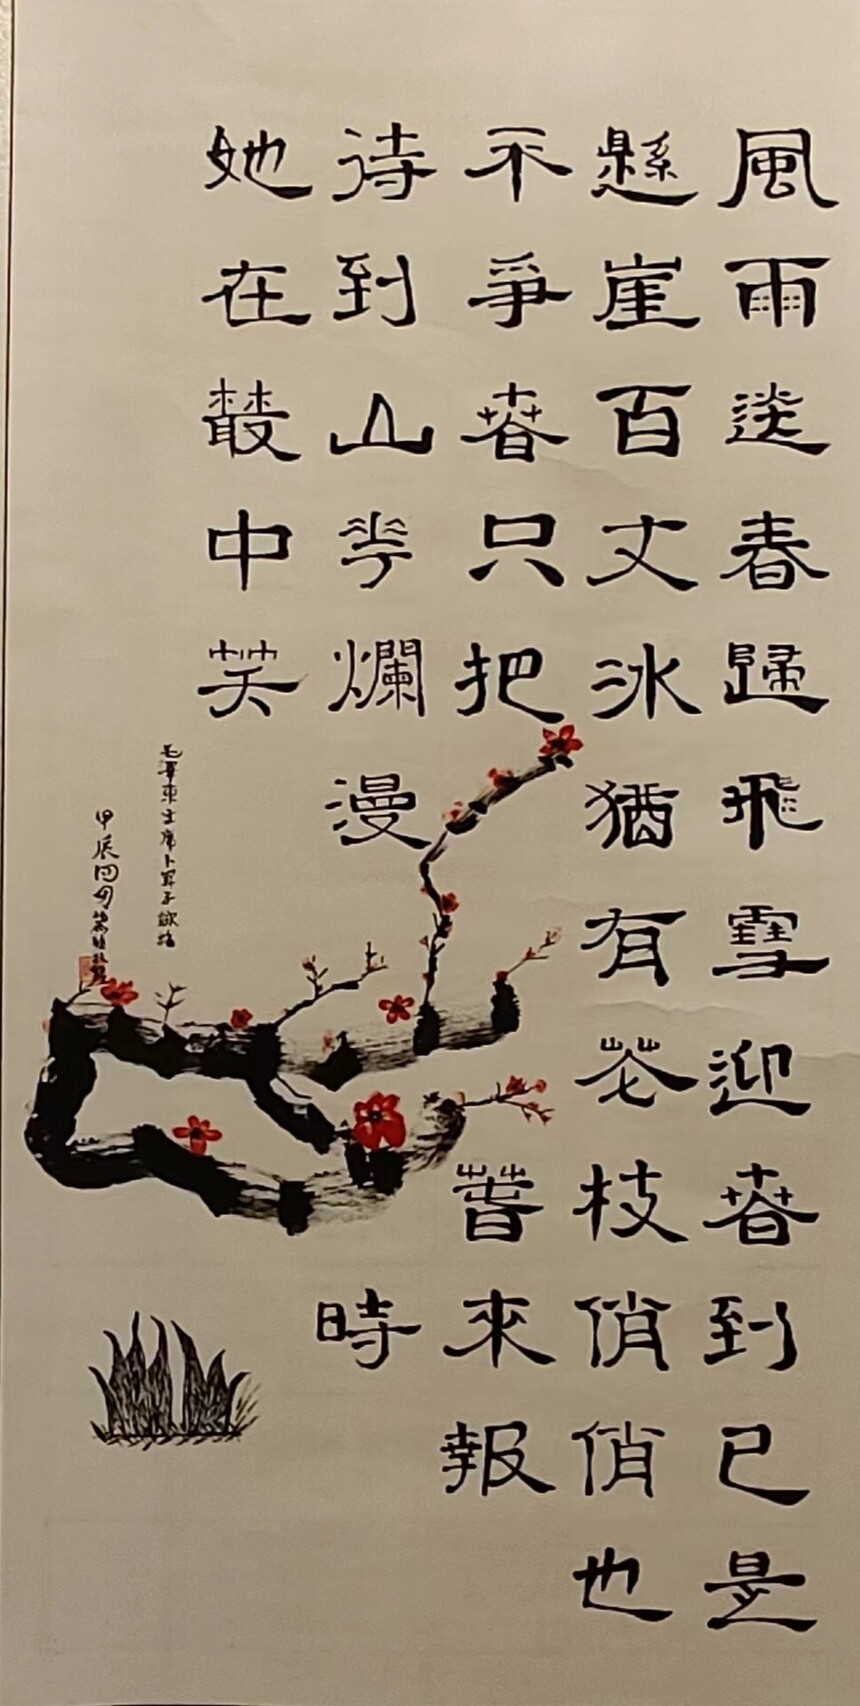 風雨送春歸飛雪迎春到已是
懸崖百丈冰猶有花枝俏俏也
不爭春只把春來報
待到山花爛漫時
她在叢中笑
毛澤東主席卜算子詠梅
甲辰